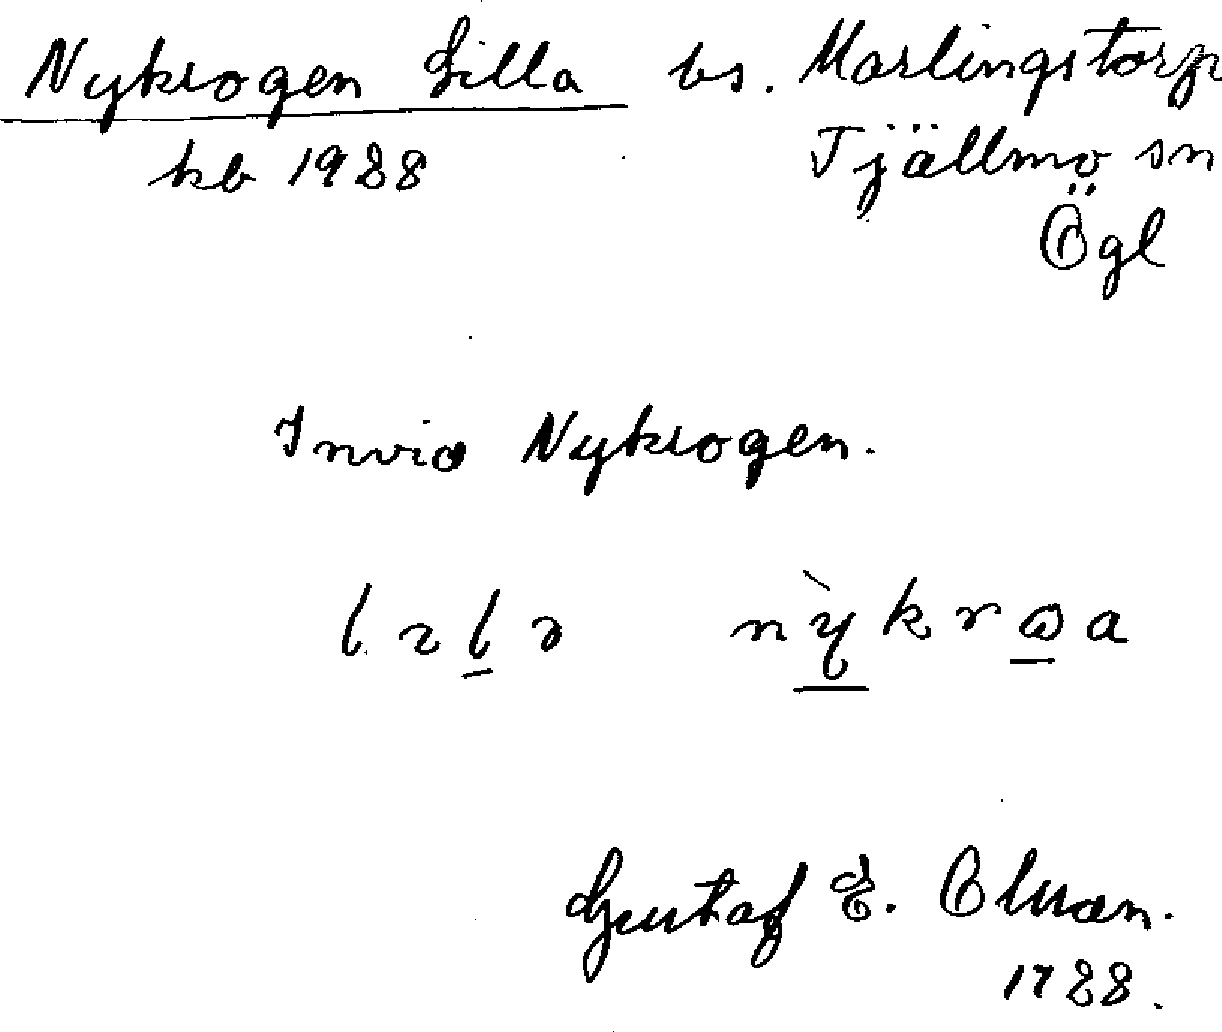 Nykrogen Lilla bs. Marlingstorp
kb 1928 Tjällmo sn
Ögl
Invid Nykrogen.
nỳkrωa
Gustaf E. Olsson.
1928.